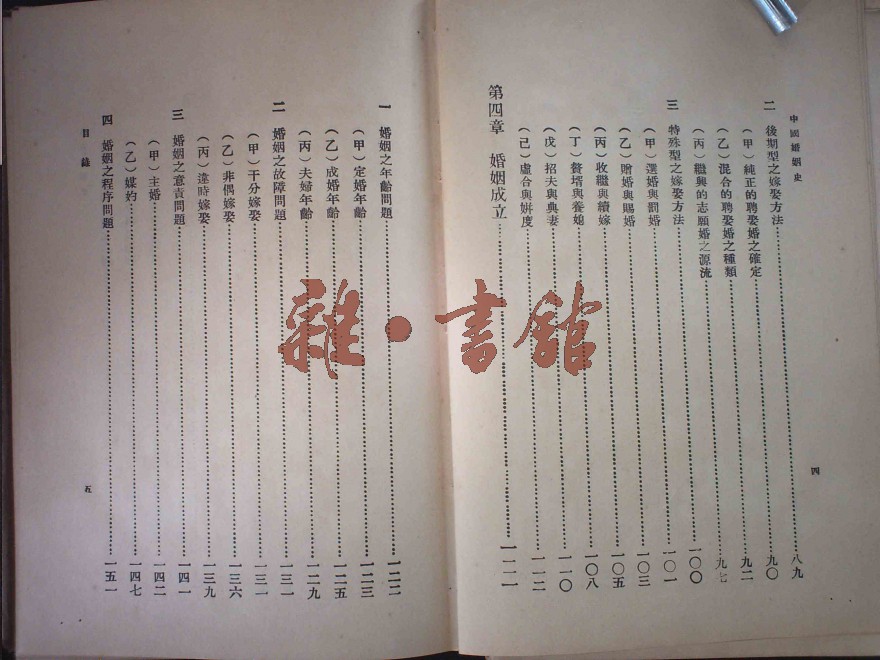 中國婚姻史
二 後期型之嫁娶方法……八九
(甲)純正的聘娶婚之確定……九〇
(乙)混合的聘娶婚之種類……九二
(丙)繼興的志願婚之源流……九七
三 特殊型之嫁娶方法……一〇〇
(甲)選婚與罰婚……一〇一
(乙)贈婚與賜婚……一〇三
(丙)收繼與續嫁……一〇五
(丁)贅壻與養媳……一〇八
(戊)招夫與典妻……一一〇
(己)虛合與姘度……一一二
第四章 婚姻成立……一二一
四
一 婚姻之年齡問題……一二二
(甲)定婚年齡……一二三
(乙)成婚年齡……一二五
(丙)夫婦年齡……一二九
二 婚姻之故障問題……一三一
(甲)干分嫁娶……一三一
(乙)非偶嫁娶……一三六
(丙)違時嫁娶……一三九
三 婚姻之意責問題……一四一
(甲)主婚……一四二
(乙)媒妁……一四七
四 婚姻之程序問題……一五一
目錄
五
雜·書館